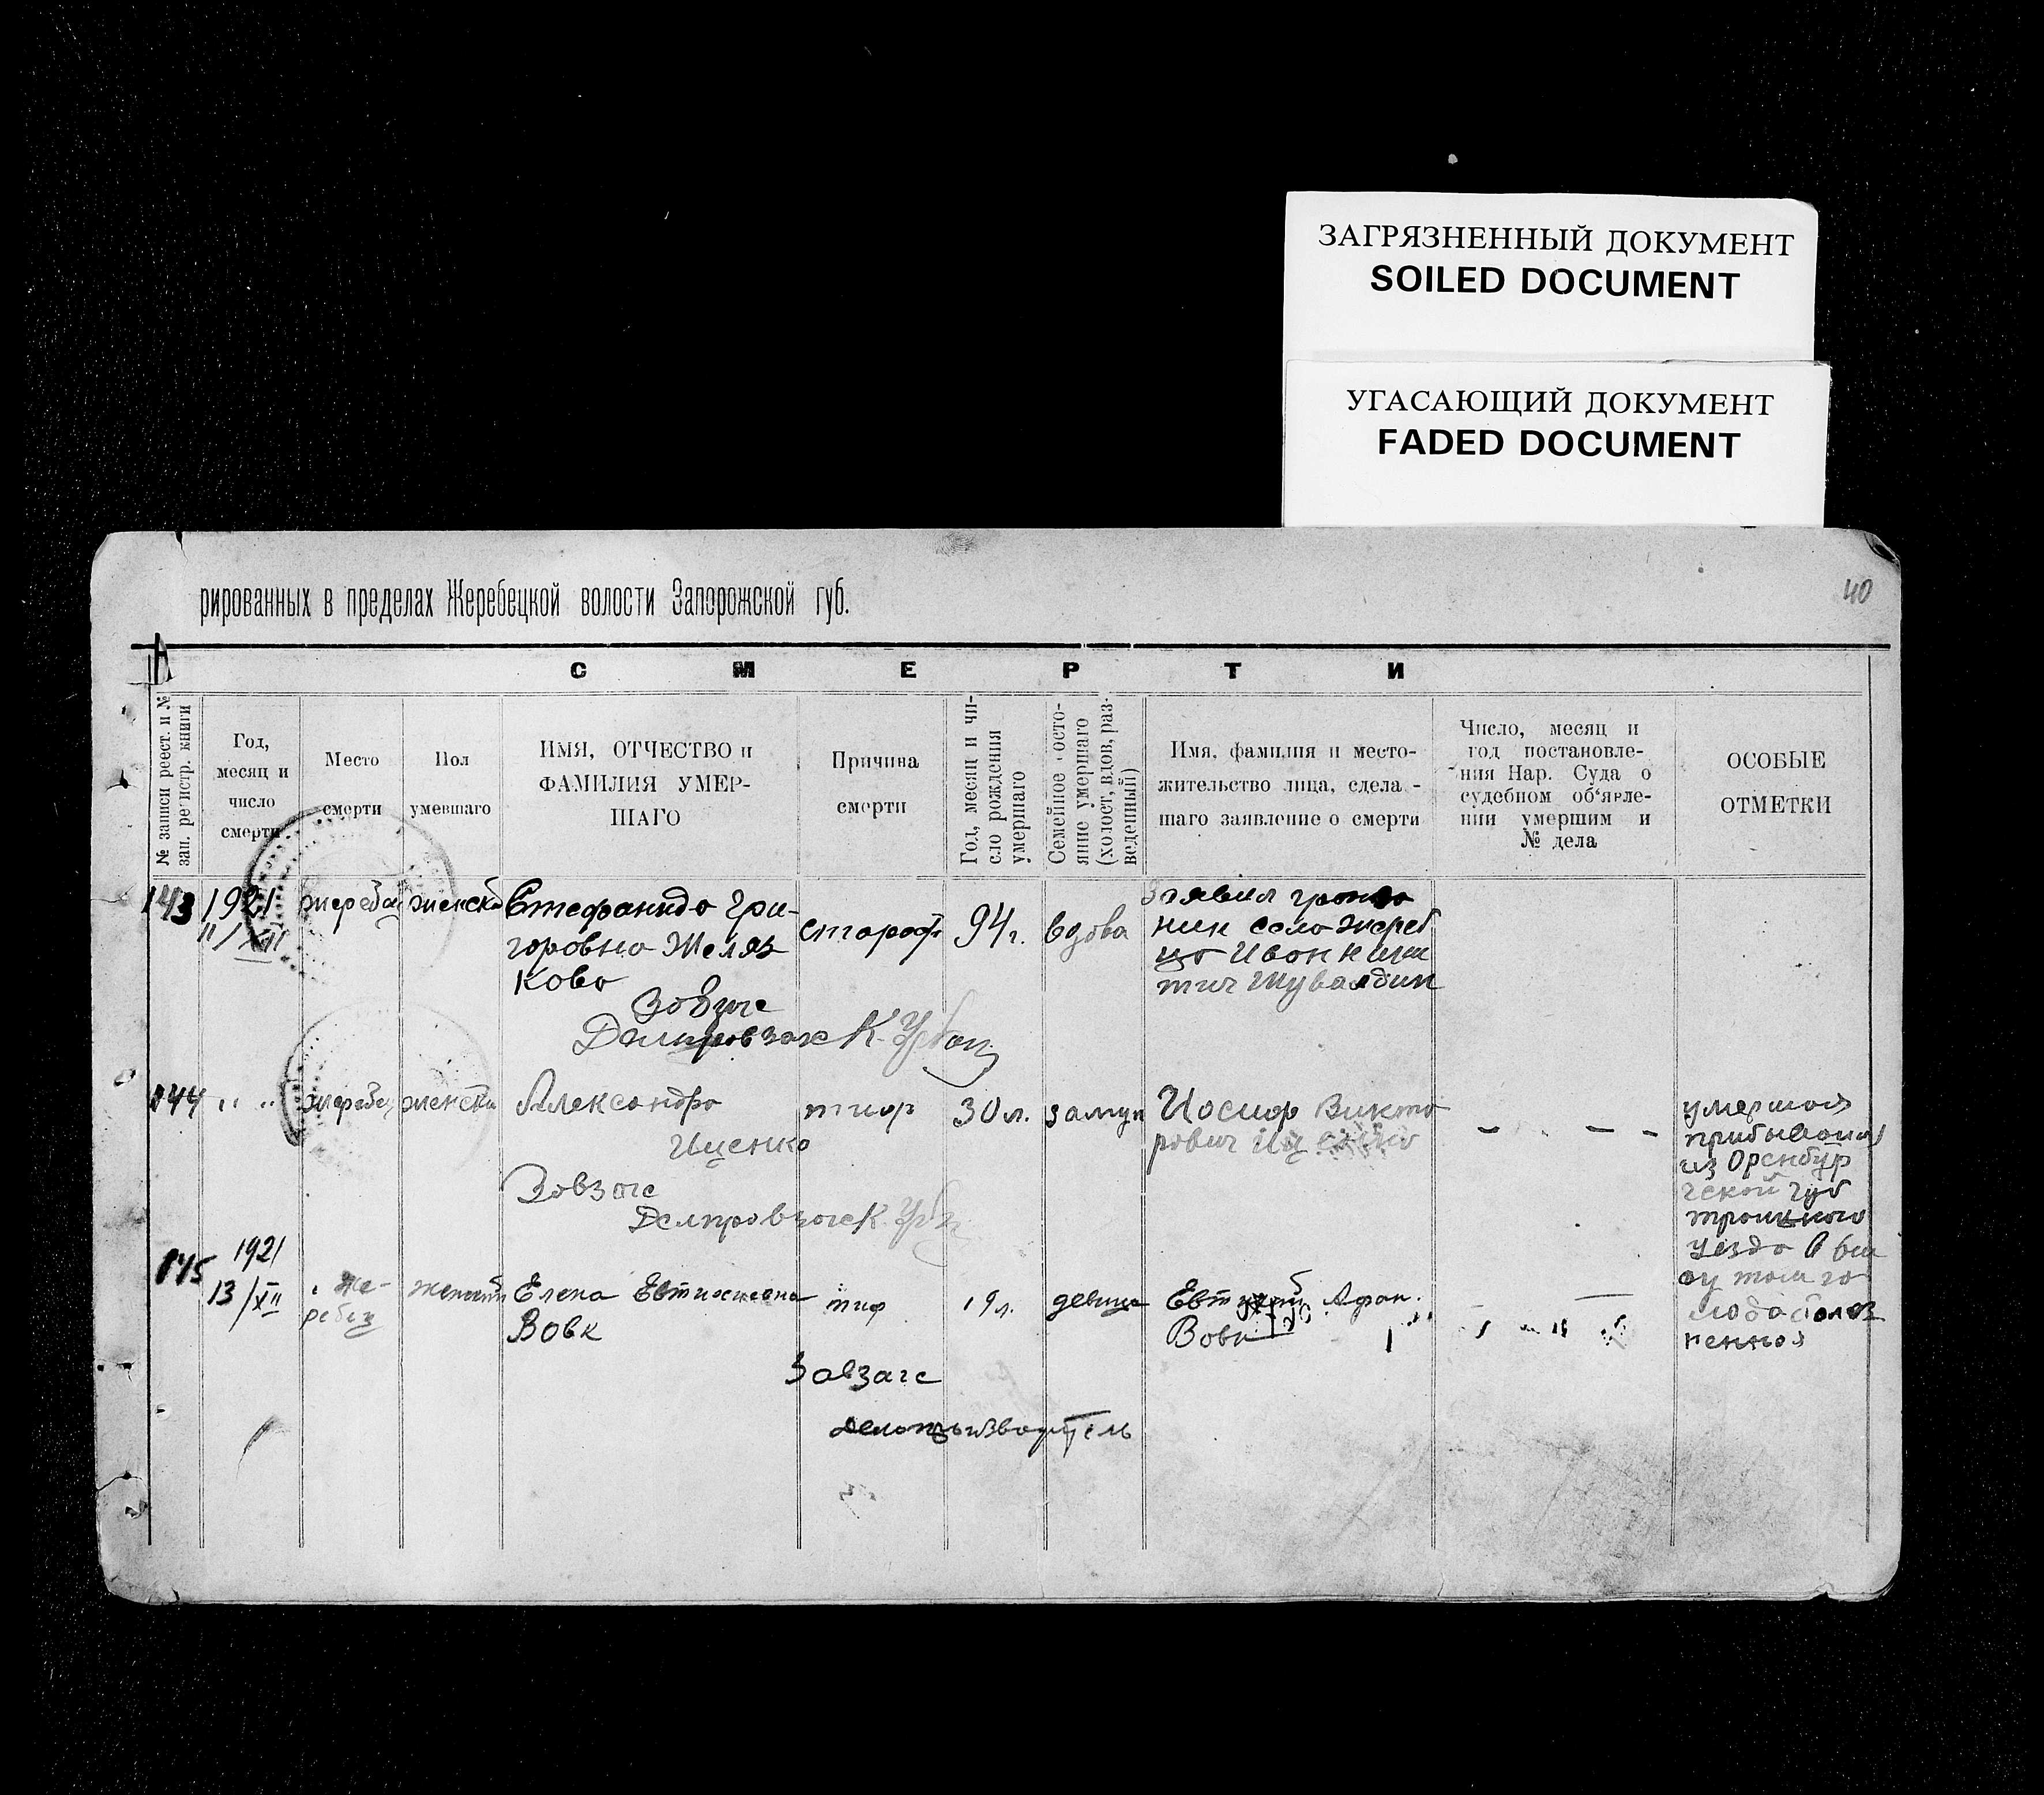 ЗАГРЯЗНЕННЫЙ ДОКУМЕНТ
SOILED DOCUMENT
УГАСАЮЩИЙ ДОКУМЕНТ
FADED DOCUMENT
40
рированных в пределах Жеребецкой волости Запорожской губ.
СМЕРТИ
№ записи реест. и №
зап. регистр. книги
Год,
месяц и
число
смерти
Место
смерти
Пол
умевшаго
ИМЯ, ОТЧЕСТВО и
ФАМИЛИЯ УМЕР-
ШАГО
Причина
смерти
Год, месяц и чи-
сло рождения
умершаго
Семейное состо-
яние умершаго
(холост, вдов, раз-
веденный)
Имя, фамилия и место-
жительство лица, сдела-
шаго заявление о смерти
Число, месяц и
год постановле-
ния Нар. Суда о
судебном об'явле-
нии умершим и
№ дела
ОСОБЫЕ
ОТМЕТКИ
143
1921
11/XII
женск
Стефанида Гри-
горовна Желяз
кова
94 г.
вдова
Заявил
нин села Жереб
ца Иван Ники
тич
Завзагс
К.
144
женск
Александра
Иценко
тиф
30 л.
замуж
Иосиф Викто
рович
умершая
прибывшая
из Оренбур
гской губ
троицкого
уезда
Завзагс
К.
145
1921
13/XII
Же-
ребец
Елена
Вовк
тиф
19 л.
девица
Афан.
Вовк
Завзагс
делопроизводитель